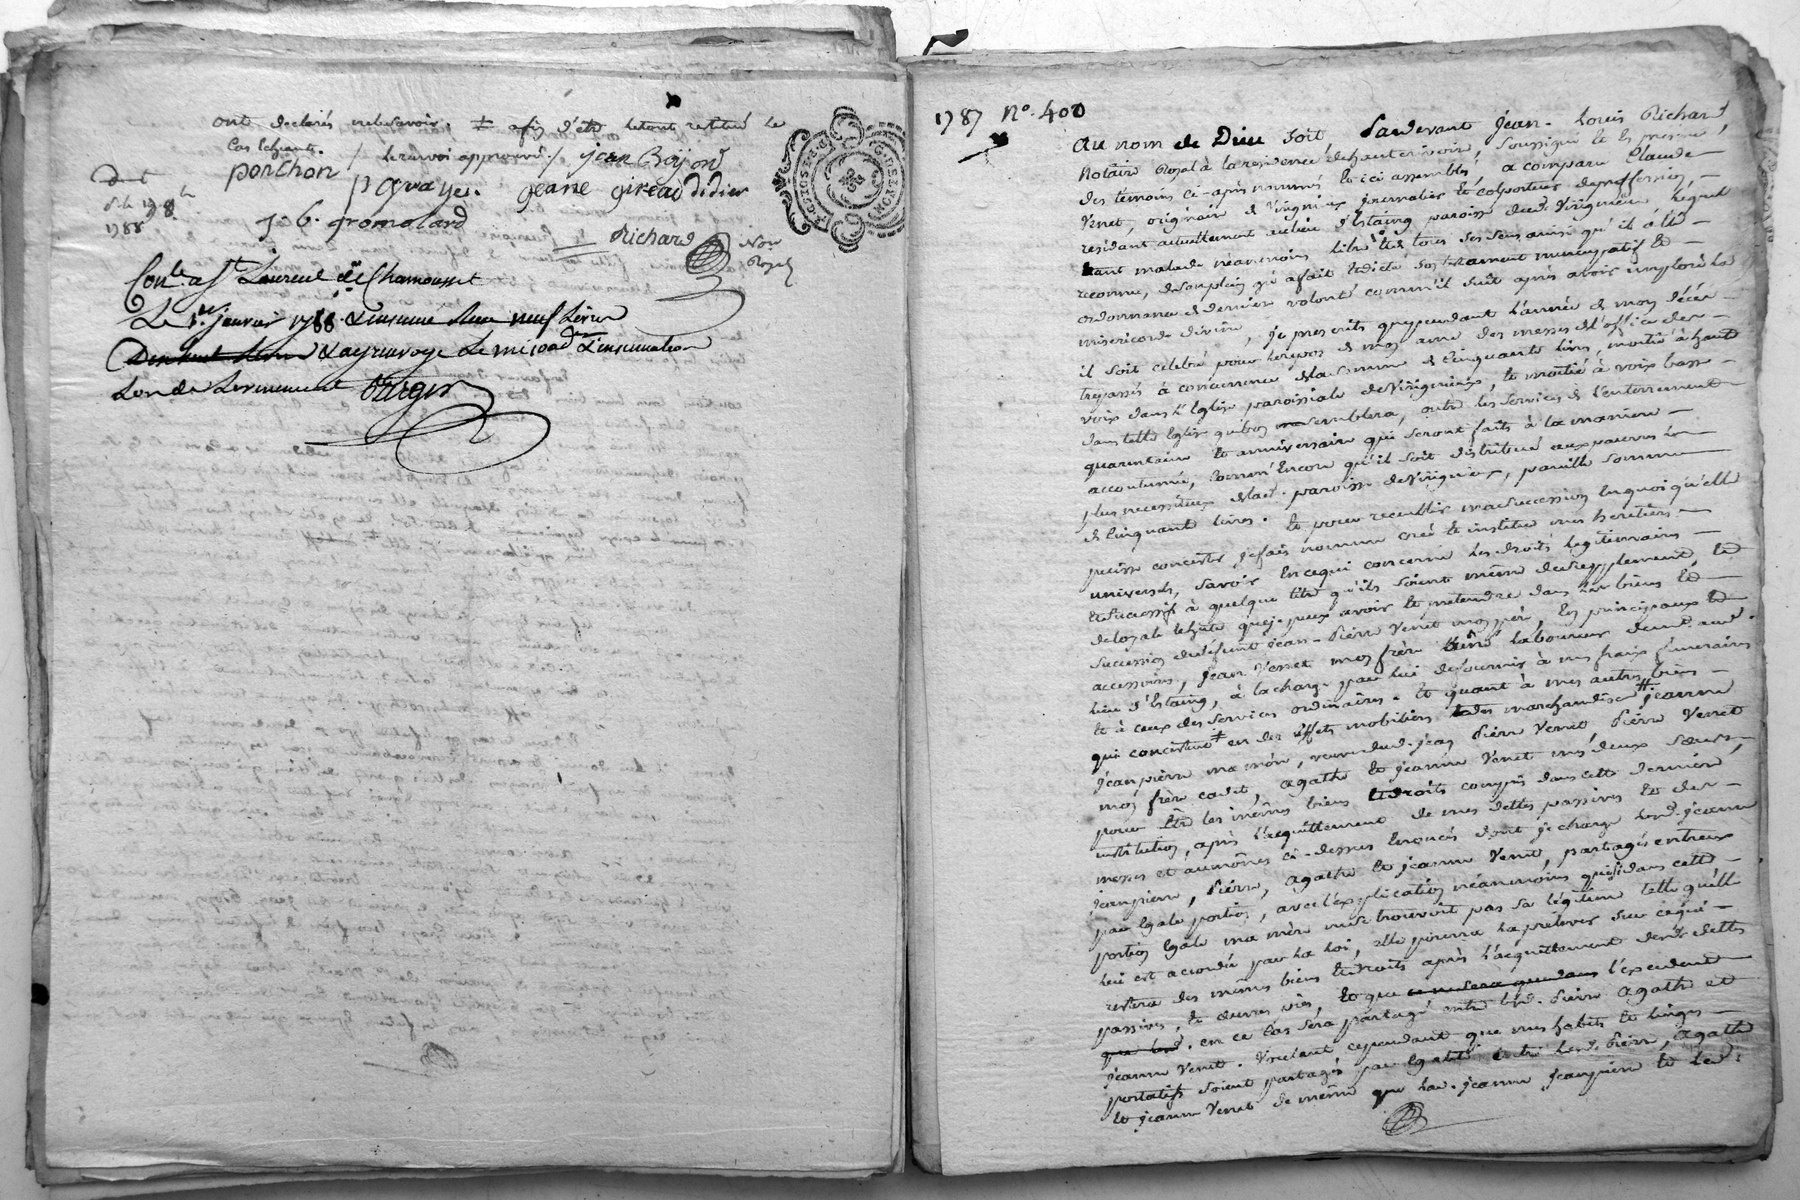 ont declarés ne le savoir. afin d'être le tout restitué le
cas echeant. le renvoi approuvé. jean Boyjon
porchon
p Gvaye. geane gireau didier
j. b. gromolard
Richard Nore Royal
1788
Conlé a St Laurent de Chamousset
Le 1er janvier 1788 & insinué Reçu neuf livres
& ay renvoyé Le mi load L'insinuation
1787 N°. 400
Au nom de Dieu soit Pardevant Jean-Louis Richard
Notaire Royal à la residence d'hauterivoire, soussigné et En presence
des temoins ci-après nommés et ici assemblés, a comparu Claude
Venet, originaire de Virignieux journalier et colporteur de profession
residant actuellement au lieu d'Estaing paroisse dud. Virignieu, lequel
étant malade néanmoins libre de tous ses sens ainsi qu'il a été
reconnu, de son plein gré a fait et dicté son testament nuncupatif et
ordonnance de derniere volonté comm'il suit après avoir imploré la
misericorde divine, je prescrits que pendant l'année de mon décès
il soit celebré pour le repos de mon ame des messes de l'office des
trepassés à concurrence de la somme de cinquante livres, moitié à haute
voix dans l'Eglise paroissiale de Virignieux, et moitié à voix basse
dans telle Eglise qu'bon semblera, outre les services de l'enterrement
quarantaine et anniversaire qui seront faits à la maniere
accoutumée, comm'Encore qu'il soit distribué aux pauvres les
plus necessiteux de lad. paroisse de Virignieux, pareille somme
de Cinquante livres. Et pour recueillir ma succession en quoi qu'elle
puisse consister, je fais nomme créé et institue mes heritiers
universels, savoir En ce qui concerne les droits legitimaires
et successifs à quelque titre qu'ils soient même de supplement, et
de loyale echute que je peux avoir et pretendre dans les biens et
succession de defunt jean-Pierre Venet mon pere, en principaux et
accessoires, jean Venet mon frere ainé laboureur demt. aud.
lieu d'Estaing, à la charge par lui de fournir à mes fraix funeraires
et à ceux des services ordinaires. Et quant à mes autres biens
qui consistent en des effets mobiliers et des marchandises jeanne
jeanpierre ma mère, veuve dud. jean Pierre Venet, Pierre Venet
mon frère cadet, agathe et jeanne Venet mes deux soeurs,
pour Etre les mêmes biens et droits compris dans cette derniere
institution, après l'acquittement de mes dettes passives et des
messes et aumônes ci-dessus Enoncés dont je charge lesd. jeanne
jeanpierre, Pierre, agathe et jeanne Venet, partagés entreux
par Egale portion, avec l'explication néanmoins que si dans cette
portion Egale ma mère ne se trouvoit pas sa légitime telle qu'elle
lui est accordée par la loi, elle pourra la prelever sur ce qui
restera des mêmes biens et droits après l'acquittement desd. dettes
passives, et œuvres pies, et que l'excedent
en ce cas sera partagé entre lesd. Pierre agathe et
jeanne Venet. Voulant cependant que mes habits et linges
portatifs soient partagés par Egalité entre lesd. Pierre, Agathe
et jeanne Venet de même que lad. jeanne jeanpierre et led.